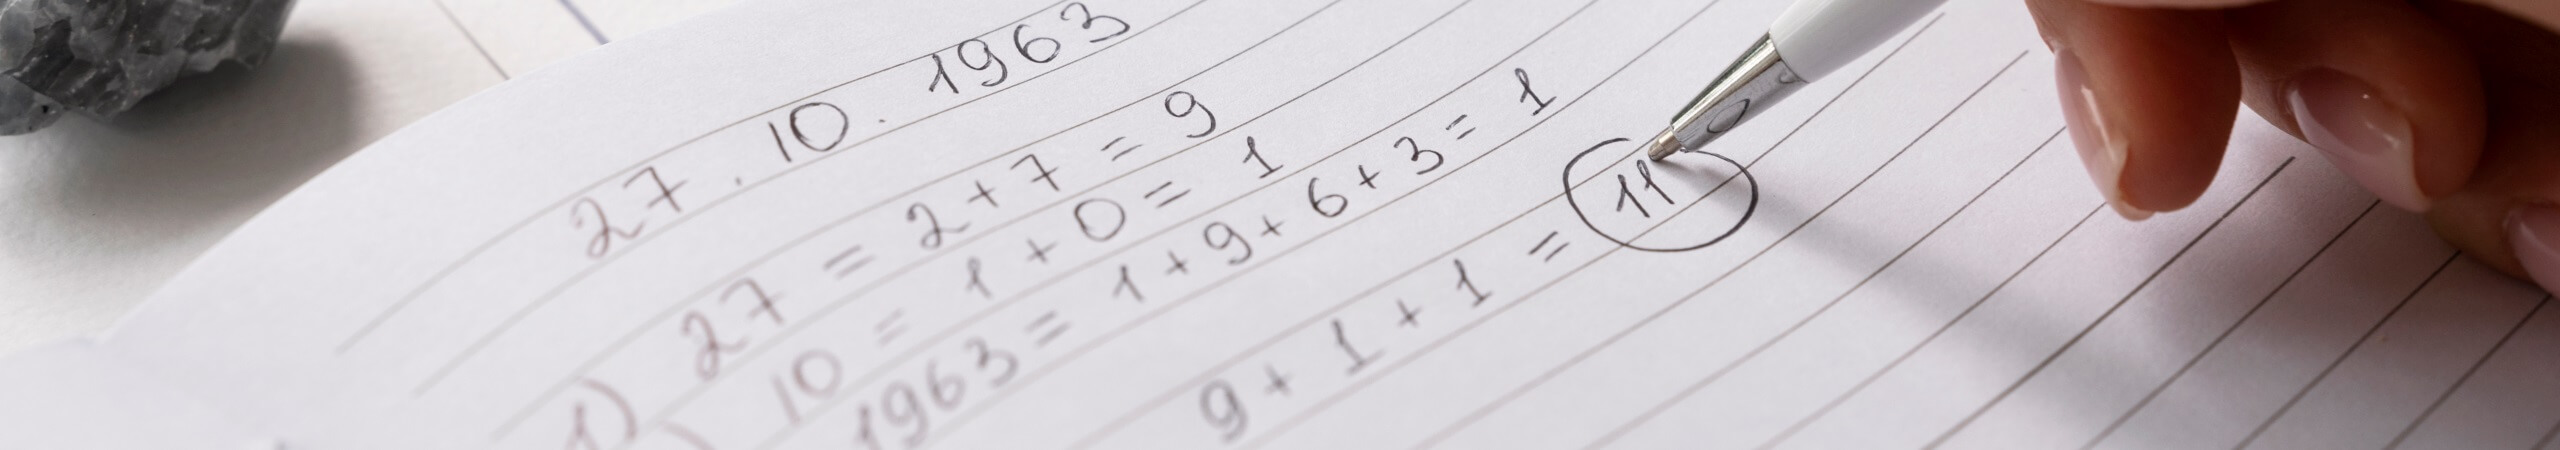 27. 10. 1963
1) 27 = 2+7 = 9
10 = 1+0 = 1
1963 = 1+9+6+3 = 1
9+1+1 = 11